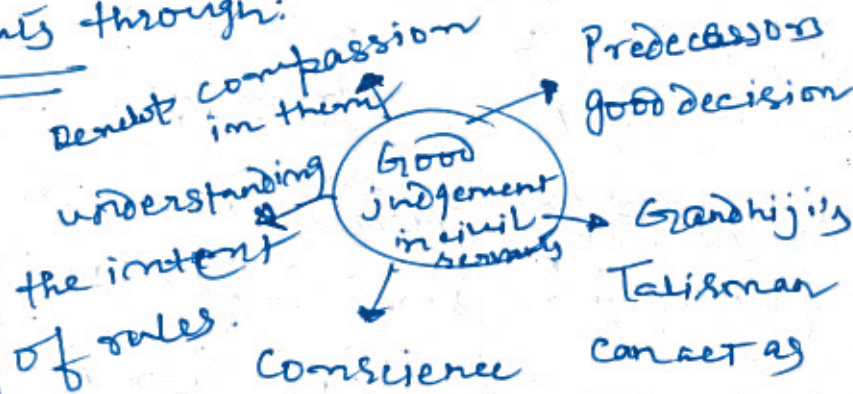 nts through:
Develop compassion
in them
understanding
the intent
of rules.
Good
judgement
in civil
servants
Predecessors
good decision
Gandhiji's
Talisman
can act as
Conscience